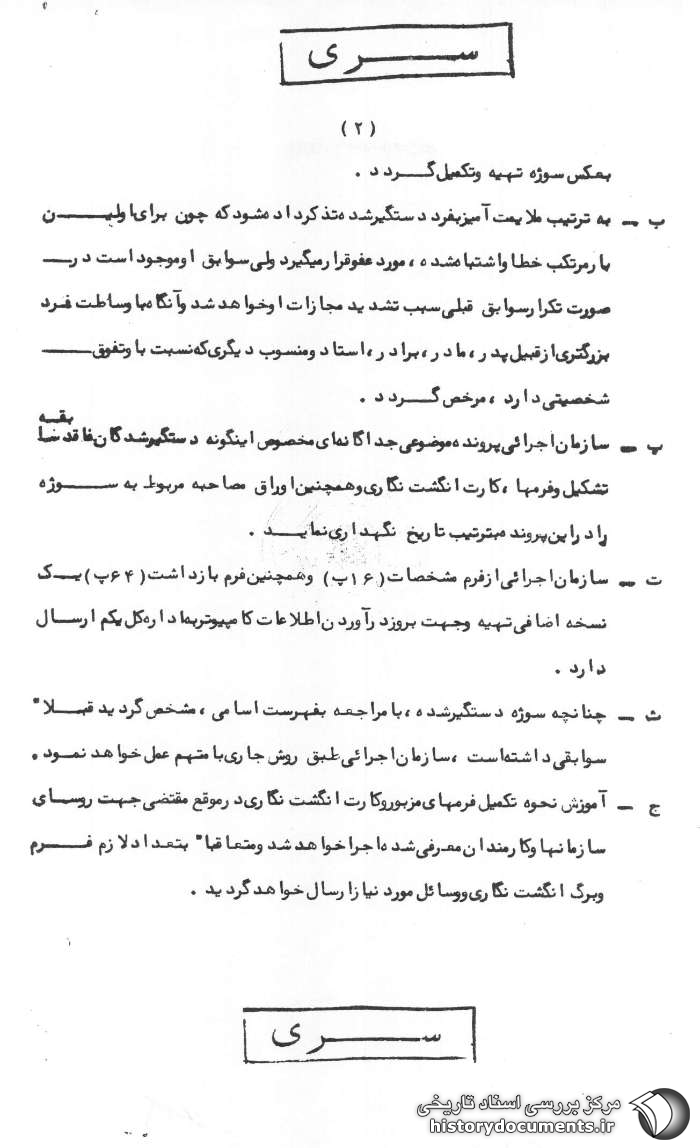 ســـری
(۲)
بعکس سوژه تهیه وتکمیل گـــردد .
ب ــ به ترتیب ملایمت آمیز بفرد دستگیرشده متذکر داده شود که چون برای اولیـــن
بار مرتکب خطا واشتباه شده ، مورد عفو قرار میگیرد ولی سوابق او موجود است درـــ
صورت تکرار سوابق قبلی سبب تشدید مجازات او خواهد شد وآنگاه با وساطت فــرد
بزرگتری از قبیل پدر ، مادر ، برادر ، استاد ومنسوب دیگری که نسبت باو تفوق ـــ
شخصیتی دارد ، مرخص گـــردد .
پ ــ سازمان اجرائی پرونده موضوعی جداگانه ای مخصوص اینگونه دستگیرشدگان فاقد سابقه
تشکیل وفرمها ، کارت انگشت نگاری وهمچنین اوراق مصاحبه مربوط به ســـوژه
را در این پرونده بترتیب تاریخ نگهداری نمایـــد .
ت ــ سازمان اجرائی از فرم مشخصات (۱۶پ) وهمچنین فرم بازداشت (۶۴پ) یــک
نسخه اضافی تهیه وجهت بروز درآوردن اطلاعات کامپیوتر به اداره کل یکم ارسال
دارد .
ث ــ چنانچه سوژه دستگیرشده ، با مراجعه بفهرست اسامی ، مشخص گردید قبــلا"
سوابقی داشته است ، سازمان اجرائی طبق روش جاری با متهم عمل خواهد نمود .
ج ــ آموزش نحوه تکمیل فرمهای مزبور وکارت انگشت نگاری در موقع مقتضی جهت روسای
سازمانها وکارمندان معرفی شده اجرا خواهد شد ومتعاقبا" بتعداد لازم فـــرم
وبرگ انگشت نگاری ووسائل مورد نیاز ارسال خواهد گردید .
ســـری
مرکز بررسی اسناد تاریخی
historydocuments.ir